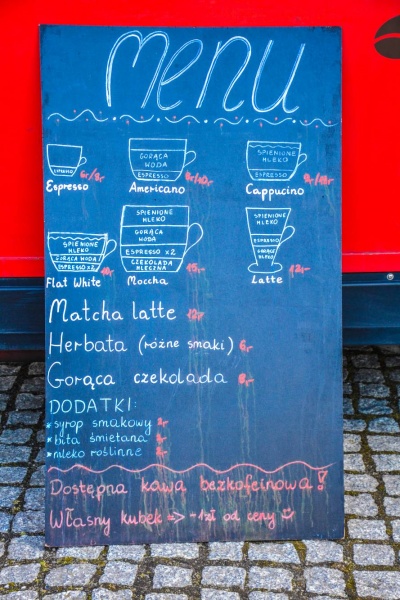 menu
ESPRESSO
6r/9r
Espresso
GORĄCA
WODA
ESPRESSO
Americano
SPIENIONE
MLEKO
ESPRESSO
Cappucino
SPIENIONE
MLEKO
GORĄCA WODA
ESPRESSO x2
Flat White
SPIENIONE
MLEKO
GORĄCA
WODA
ESPRESSO x2
CZEKOLADA
MLECZNA
15,-
Moccha
SPIENIONE
MLEKO
ESPRESSO
GORĄCE
MLEKO
12,-
Latte
Matcha latte
Herbata (różne smaki) 6,-
Gorąca czekolada 8,-
DODATKI:
*syrop smakowy
*bita śmietana
*mleko roślinne
Dostępna kawa bezkofeinowa!
Własny kubek => -1zł od ceny